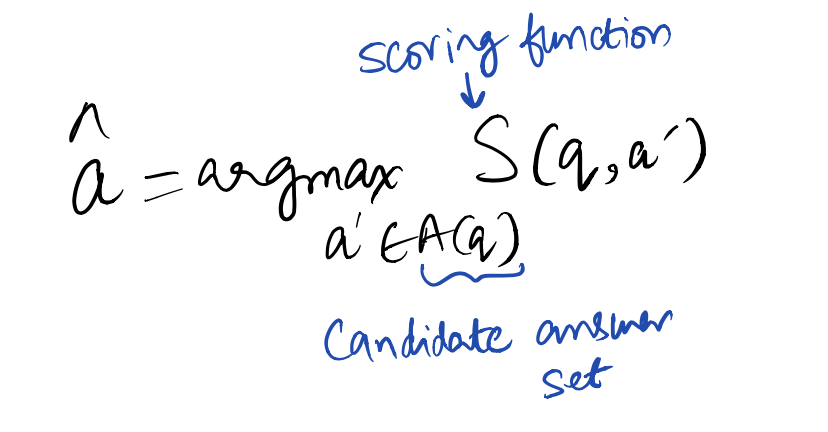 scoring function
â = argmax S(q, a')
a' ∈ A(q)
Candidate answer
set